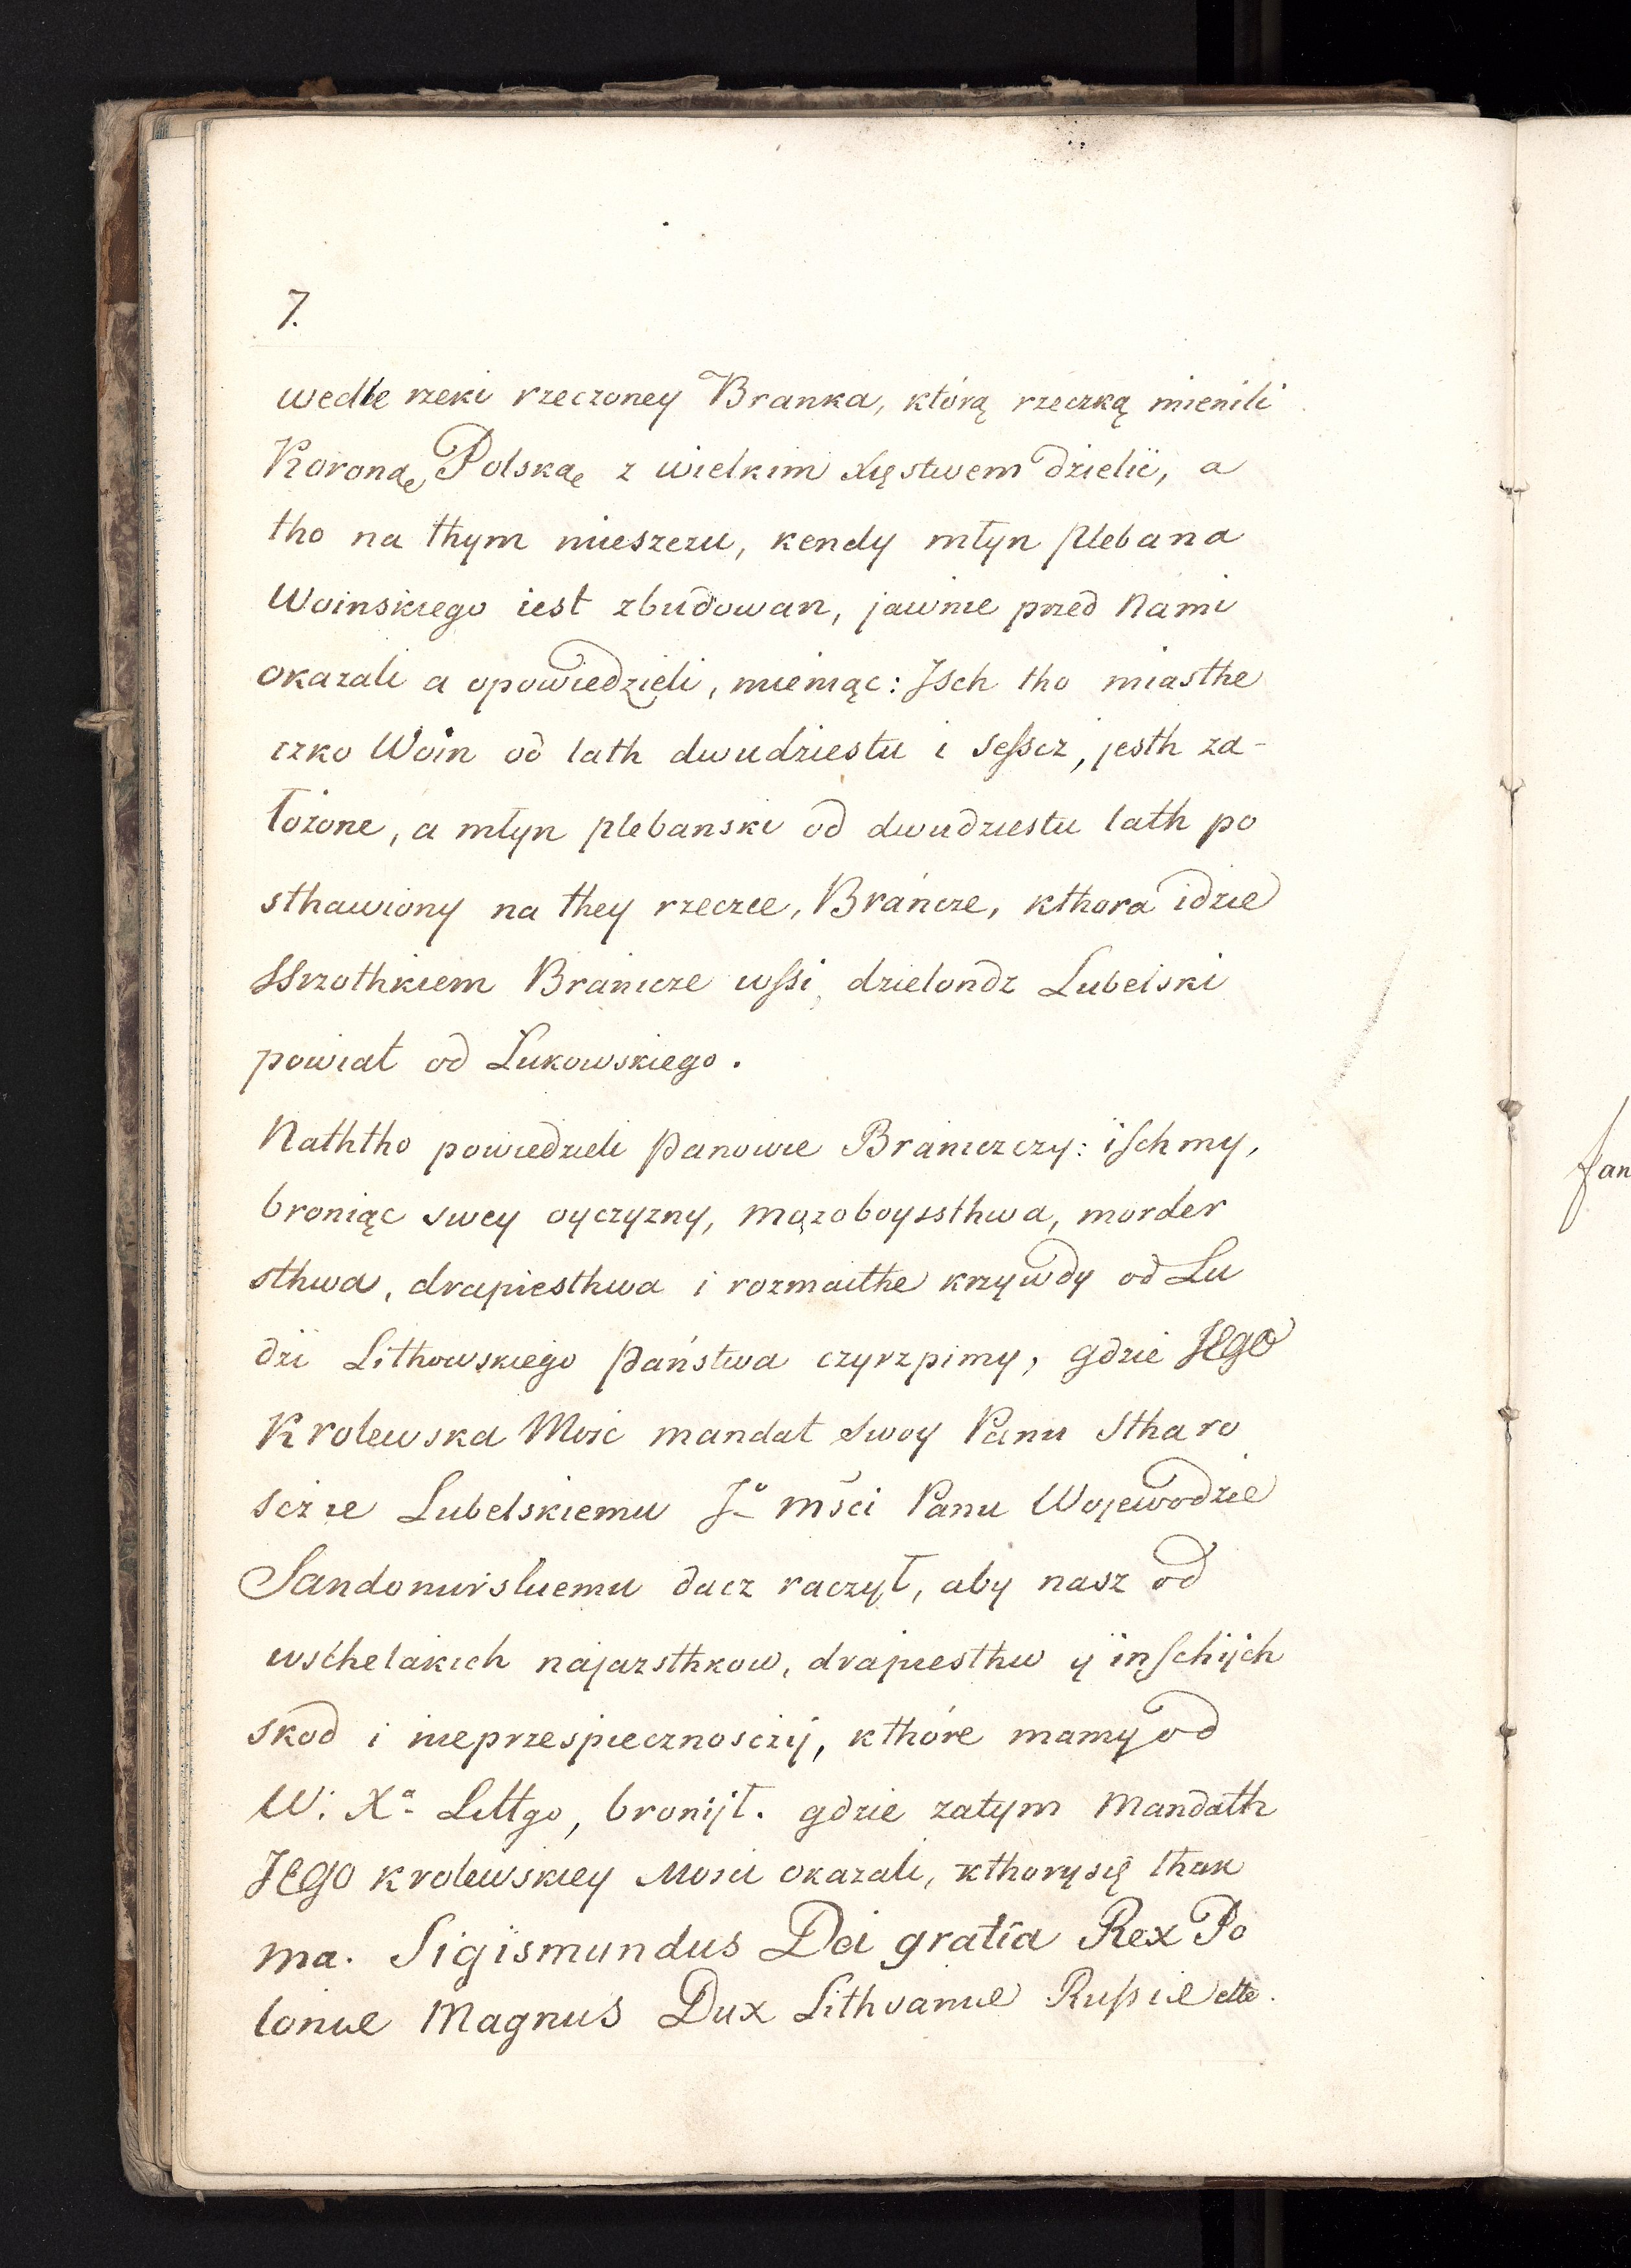 7.
wedle rzeki rzeczoney Branka, którą rzeczką mienili
Koronąę Polskąę z wielkim Xięstwem dzielić, a
tho na thym mieszczu, kendy młyn plebana
Woinskiego iest zbudowan, jawnie przed Nami
okazali a opowiedzieli, mieniąc: Isch tho miasthe
czko Woin od lath dwudziestu i sesscz, jesth za-
łożone, a młyn plebanski od dwudziestu lath po
sthawiony na they rzeczce, Brańcze, kthora idzie
SSrzothkiem Branicze wssi, dzielondz Lubelski
powiat od Łukowskiego.
Naththo powiedzieli panowie Braniczczy: ischmy,
broniąc swey oyczyzny, mązoboyssthwa, morder
sthwa, drapiesthwa i rozmaithe krzywdy od Lu
dzi Lithowskiego państwa czyrzpimy, gdzie JEgo
Krolewska Mosc mandat swoy Panu Stharo
scz ie Lubelskiemu Jº mści Panu Wojewodzie
Sandomirskiemu dacz raczył, aby nasz od
wschelakich najazsthkow, drapiesthw ÿ inschÿch
skod i nieprzespiecznosczÿ, kthóre mamy od
W: Xª Littgo, bronÿł. gdzie zatym Mandath
JEgo krolewskiey Mosci okazali, kthory się thak
ma. Sigismundus Dei gratia Rex Po
loniæ Magnus Dux Lithvaniæ Russiæ ette.
fan